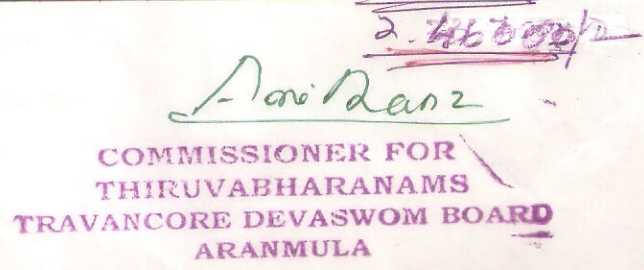 COMMISSIONER FOR
THIRUVABHARANAMS
TRAVANCORE DEVASWOM BOARD
ARANMULA